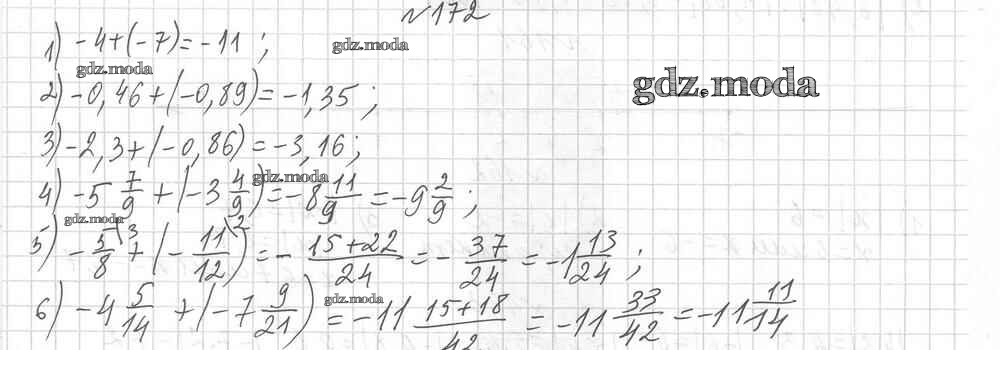 №172
1) -4+(-7)=-11 ;
gdz.moda
gdz.moda
gdz.moda
2) -0,46+(-0,89)=-1,35 ;
3) -2,3+(-0,86)=-3,16;
4) -5 7/9 + (-3 4/9)=-8 11/9 = -9 2/9 ;
gdz.moda
gdz.moda
5) -5/8\3 + (-11/12\2) = - 15+22/24 = - 37/24 = -1 13/24 ;
6) -4 5/14 + (-7 9/21) = -11 15+18/42 = -11 33/42 = -11 11/14
gdz.moda